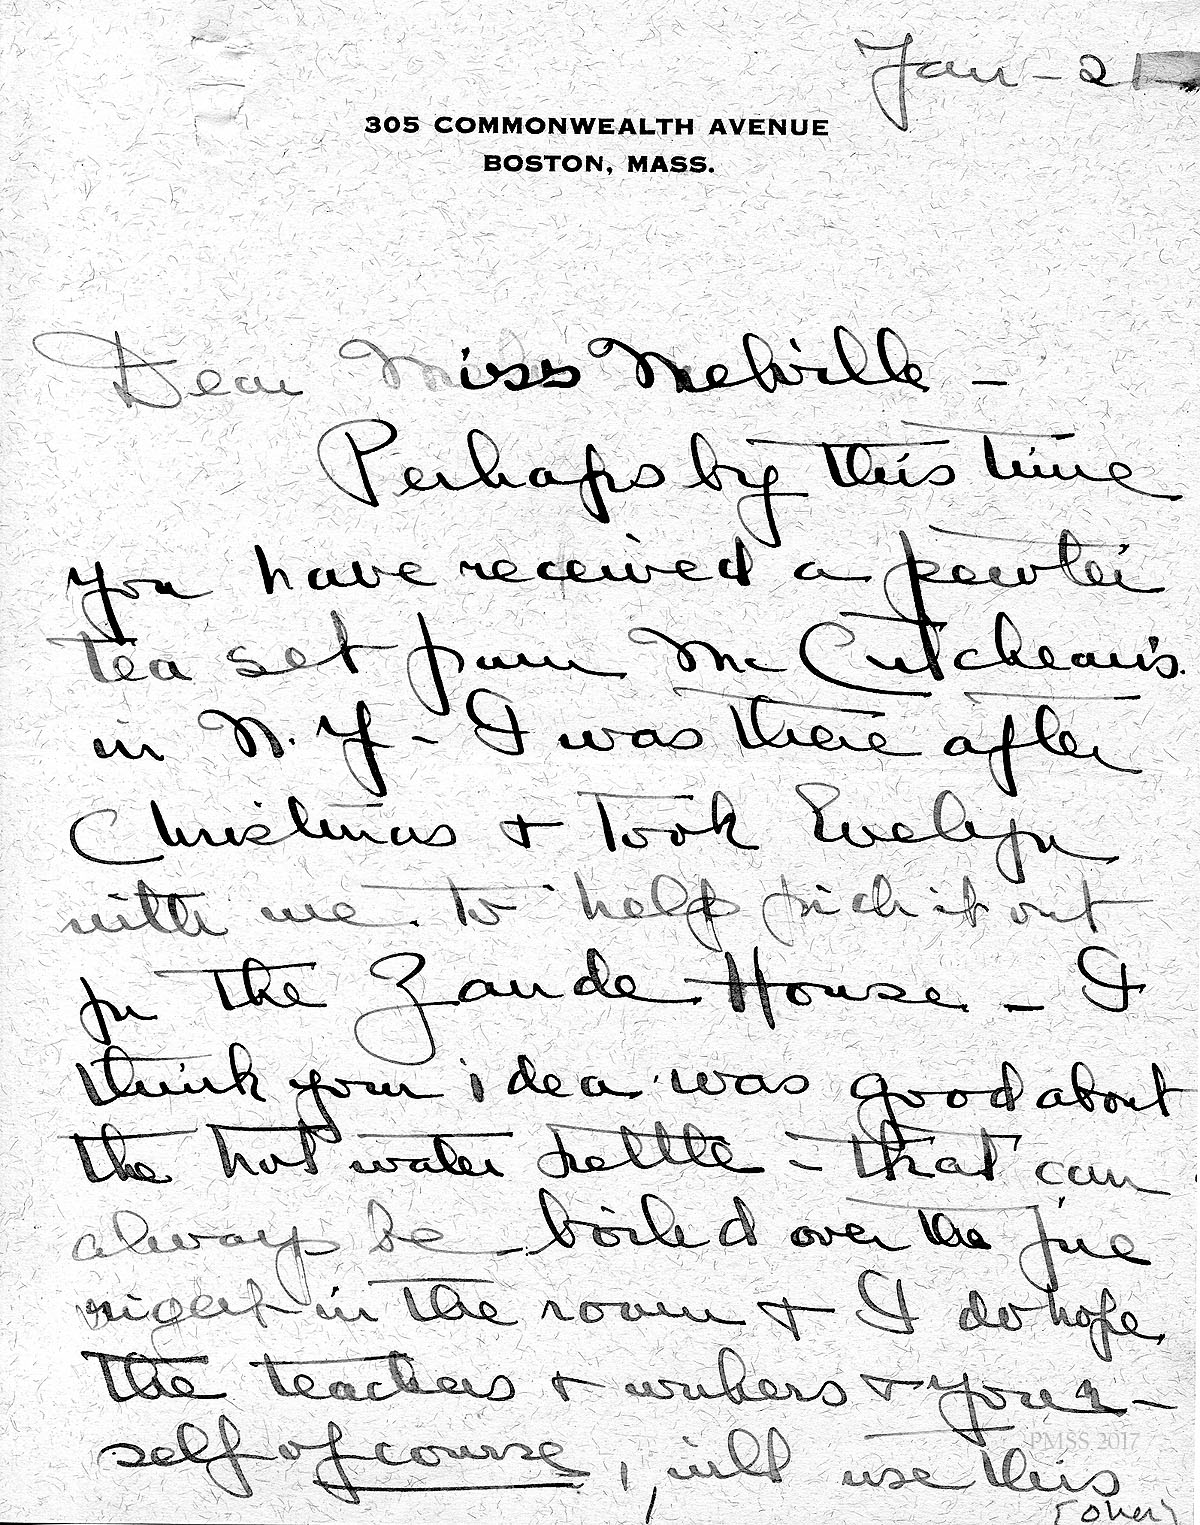 Jan - 21
305 COMMONWEALTH AVENUE
BOSTON, MASS.
Dear Miss Melville -
Perhaps by this time
you have received a pewter
tea set from McCutcheon's
in N. Y - I was there after
Christmas & took Evelyn
with me to help pick it out
for the Zande House - I
think your idea was good about
the hot water kettle - that can
always be boiled over the fire
right in the room & I do hope
the teachers & workers & your-
self of course, will use this
(over)
PMSS 2017